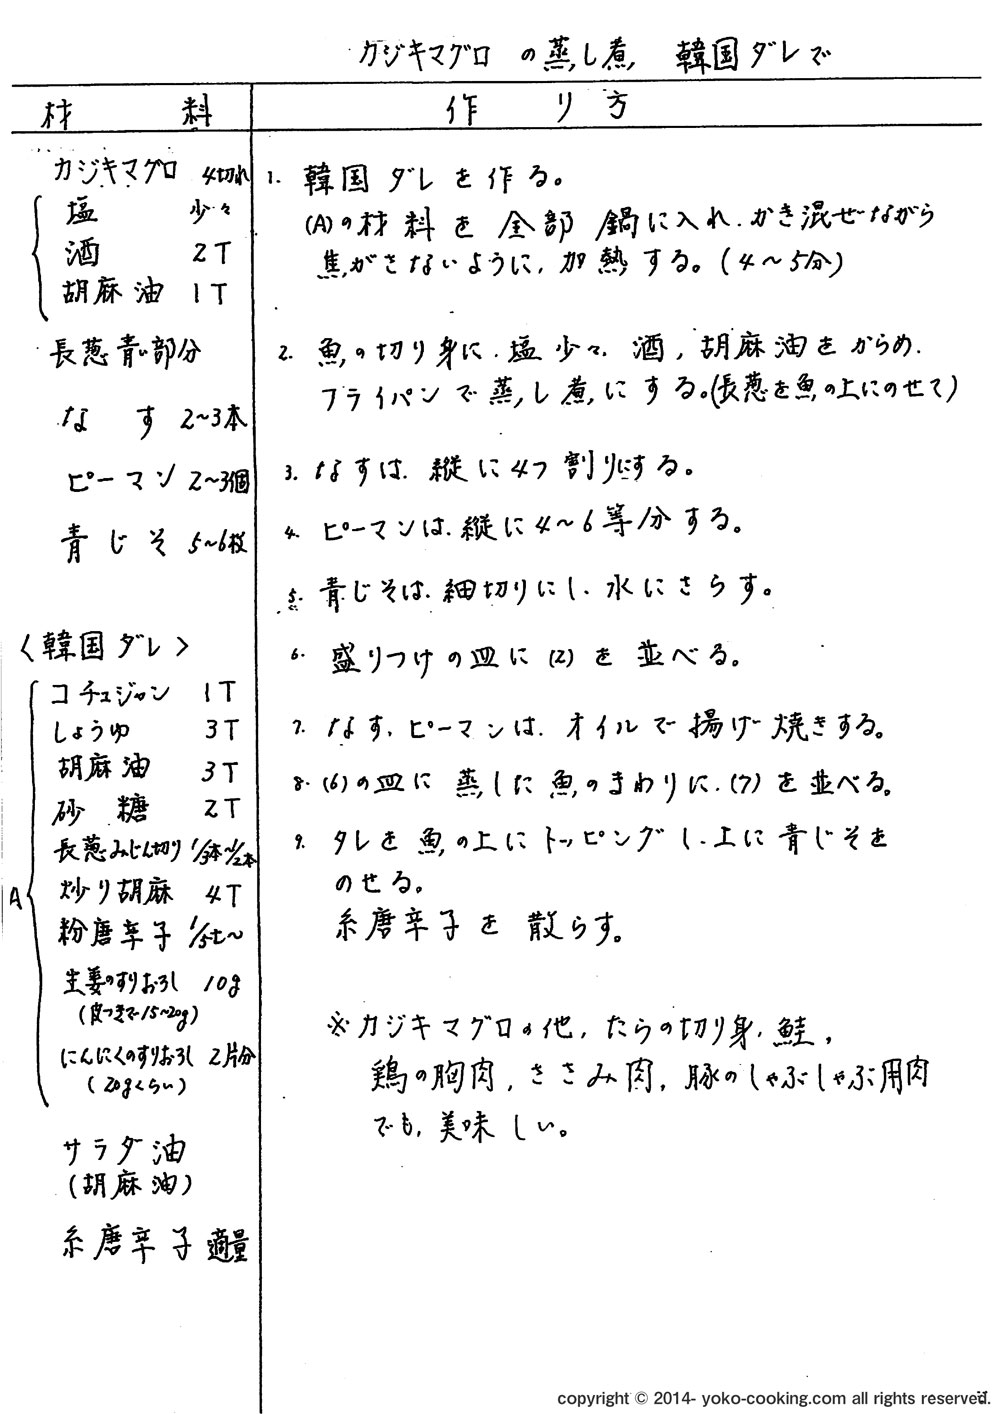 カジキマグロ の蒸し煮 韓国ダレで
材料
作り方
カジキマグロ 4切れ
塩 少々
酒 2T
胡麻油 1T
長葱青い部分
なす 2〜3本
ピーマン 2〜3個
青じそ 5〜6枚
〈韓国ダレ〉
A
コチュジャン 1T
しょうゆ 3T
胡麻油 3T
砂糖 2T
長葱みじん切り 1/3本〜1/2本
炒り胡麻 4T
粉唐辛子 1/5t〜
生姜のすりおろし 10g
(皮つきで15〜20g)
にんにくのすりおろし 2片分
(20gくらい)
サラダ油
(胡麻油)
糸唐辛子 適量
1. 韓国ダレを作る。
(A)の材料を全部鍋に入れ、かき混ぜながら
焦がさないように、加熱する。(4〜5分)
2. 魚の切り身に、塩少々、酒、胡麻油をからめ、
フライパンで蒸し煮にする。(長葱を魚の上にのせて)
3. なすは、縦に4つ割りにする。
4. ピーマンは、縦に4〜6等分する。
5. 青じそは、細切りにし、水にさらす。
6. 盛りつけの皿に(2)を並べる。
7. なす、ピーマンは、オイルで揚げ焼きする。
8. (6)の皿に蒸した魚のまわりに、(7)を並べる。
9. タレを魚の上にトッピングし、上に青じそを
のせる。
糸唐辛子を散らす。
※カジキマグロの他、たらの切り身、鮭、
鶏の胸肉、ささみ肉、豚のしゃぶしゃぶ用肉
でも、美味しい。
copyright © 2014- yoko-cooking.com all rights reserved.